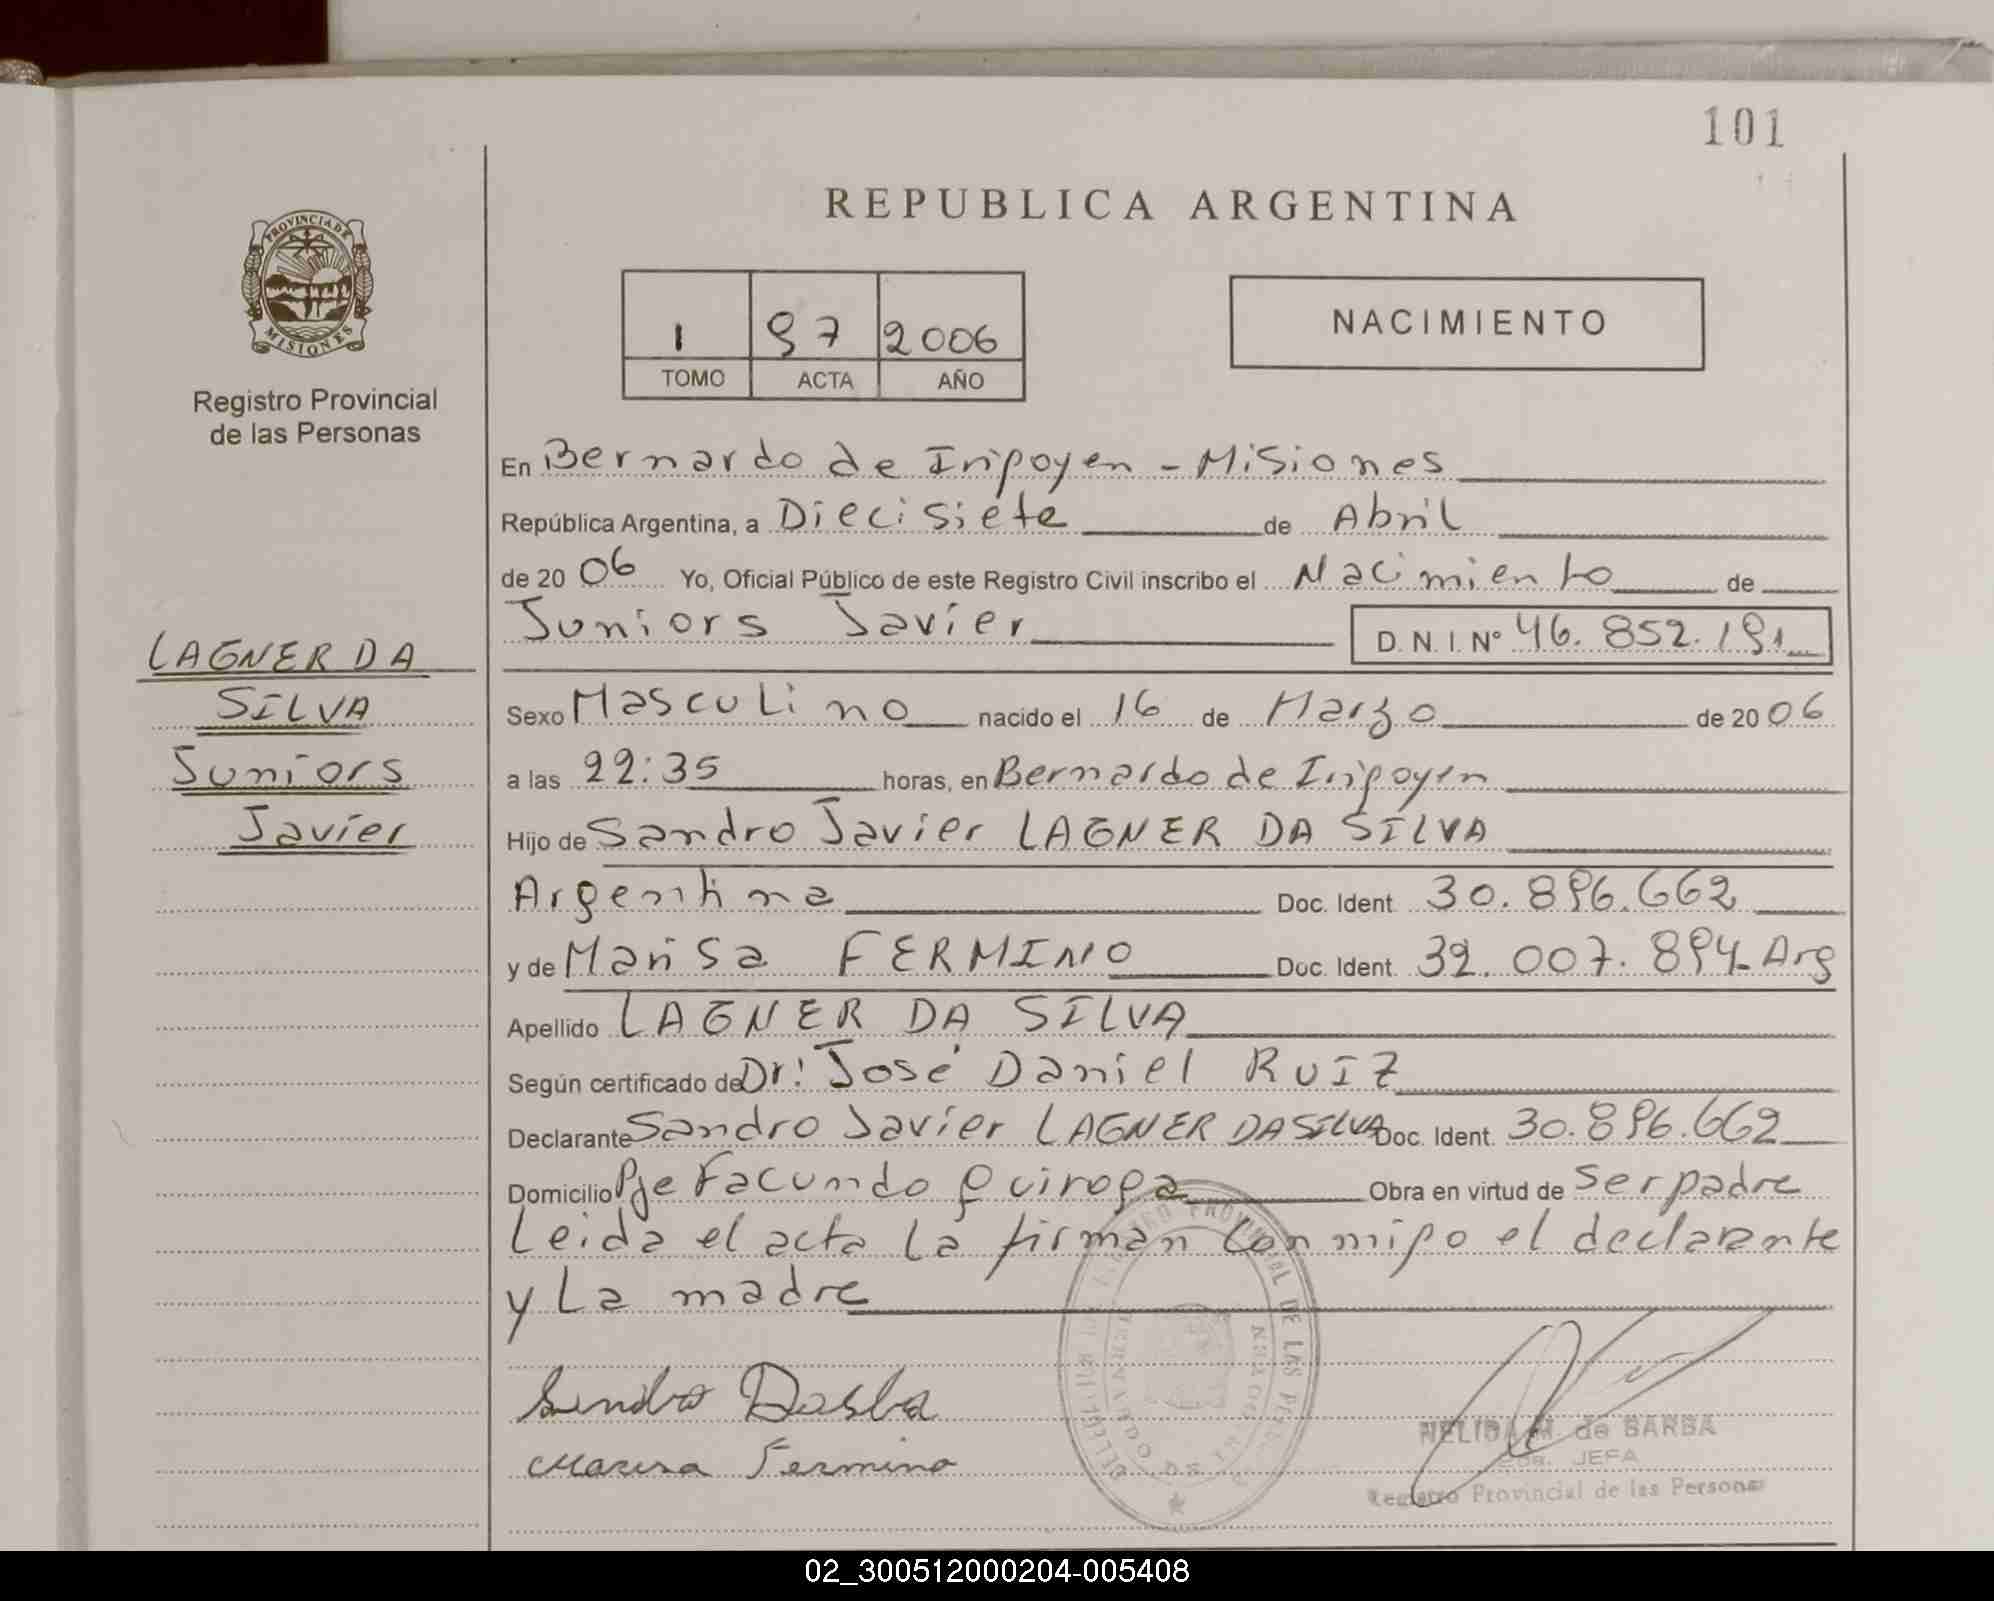 101
REPUBLICA ARGENTINA
PROVINCIA DE
MISIONES
Registro Provincial
de las Personas
1 97 2006
TOMO ACTA AÑO
NACIMIENTO
En Bernardo de Irigoyen - Misiones
República Argentina, a Diecisiete de Abril
de 2006 Yo, Oficial Público de este Registro Civil inscribo el Nacimiento de
Juniors Javier D. N. I. Nº 46.852.191
LAGNER DA
SILVA
Juniors
Javier
Sexo Masculino nacido el 16 de Marzo de 2006
a las 22:35 horas, en Bernardo de Irigoyen
Hijo de Sandro Javier LAGNER DA SILVA
Argentina Doc. Ident. 30.896.662
y de Marisa FERMINO Doc. Ident. 32.007.894 Arg
Apellido LAGNER DA SILVA
Según certificado de Dr: José Daniel RUIZ
Declarante Sandro Javier LAGNER DA SILVA Doc. Ident. 30.896.662
Domicilio Pje Facundo Quiroga Obra en virtud de Ser padre
Leida el acta la firman conmigo el declarante
y La madre
Sandro Dasilva
Marisa Fermino
NELIDA M. de BARBA
JEFA
Registro Provincial de las Personas
02_300512000204-005408